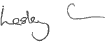 Lesley C